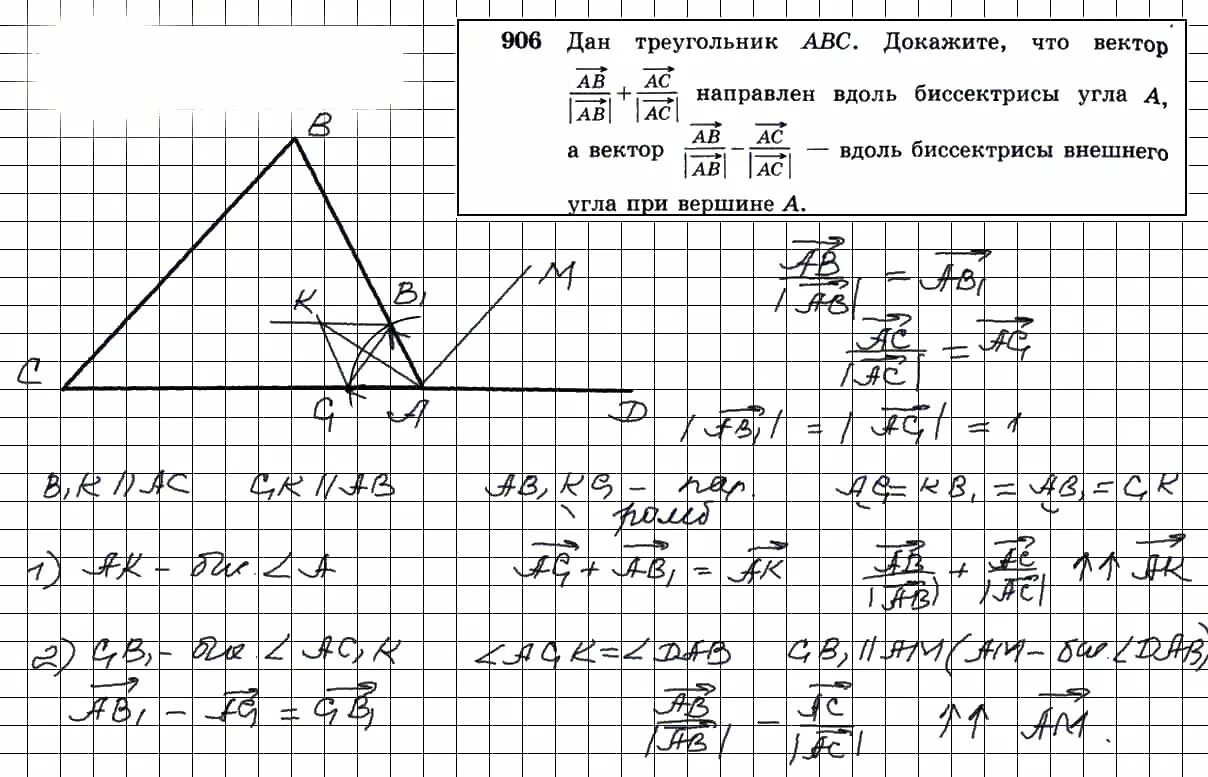 906 Дан треугольник ABC. Докажите, что вектор
AB/|AB| + AC/|AC| направлен вдоль биссектрисы угла A,
а вектор AB/|AB| − AC/|AC| — вдоль биссектрисы внешнего
угла при вершине A.
B
M
K
B₁
C
C₁
A
D
AB/|AB| = AB₁
AC/|AC| = AC₁
|AB₁| = |AC₁| = 1
B₁K || AC C₁K || AB AB₁KC₁ – пар. AC₁ = KB₁ = AB₁ = C₁K
ромб
1) AK – бис. ∠A AC₁ + AB₁ = AK AB/|AB| + AC/|AC| ↑↑ AK
2) C₁B₁ – бис. ∠AC₁K ∠AC₁K = ∠DAB C₁B₁ || AM (AM – бис. ∠DAB)
AB₁ – AC₁ = C₁B₁ AB/|AB| – AC/|AC| ↑↑ AM.